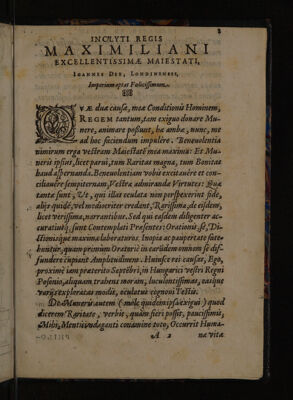 INCLYTI REGIS
MAXIMILIANI
EXCELLENTISSIMÆ MAIESTATI,
IOANNES DEE, LONDINENSIS,
Imperium optat Fœlicissimum.
QVÆ duæ causæ, meæ Conditionis Hominem,
REGEM tantum, tam exiguo donare Mu-
nere, animare possunt, hæ ambæ, nunc, me
ad hoc faciendum impulere. Beneuolentia
nimirum erga vestram Maiestatē mea maxima: Et Mu-
neris ipsius, licet parui, tum Raritas magna, tum Bonitas
haud aspernanda. Beneuolentiam vobis excitauere et con-
ciliauere sempiternam, Vestræ admirandæ Virtutes: Quæ
tantæ sunt, Vt, qui illas oculata non perspexerint fide,
alijs quidē, vel mediocriter credant, Rarissima, de eisdem,
licet verissima, narrantibus. Sed qui easdem diligenter ac-
curatiusq́; sunt Contemplati Præsentes: Orationis se, Di-
ctionisque maxima laboraturos. Inopia ac paupertate fate-
buntur, quam primum Oratione in earundem omnem se dif-
fundere cupiant Amplitudinem. Huiusce rei causas, Ego,
proximè iam præterito Septēbri, in Hungarici vestri Regni
Posonio, aliquam trahens moram, luculentissimas, easque
varijs exploratas modis, oculatus cognoui Testis.
De Muneris autem (mole quidem ipsā exigui) quod
dicerem Raritate, verbis, quàm fieri possit, paucissimis,
Mihi, Mentis indaganti conamine toto, Occurrit Huma-
A 2 næ vitæ